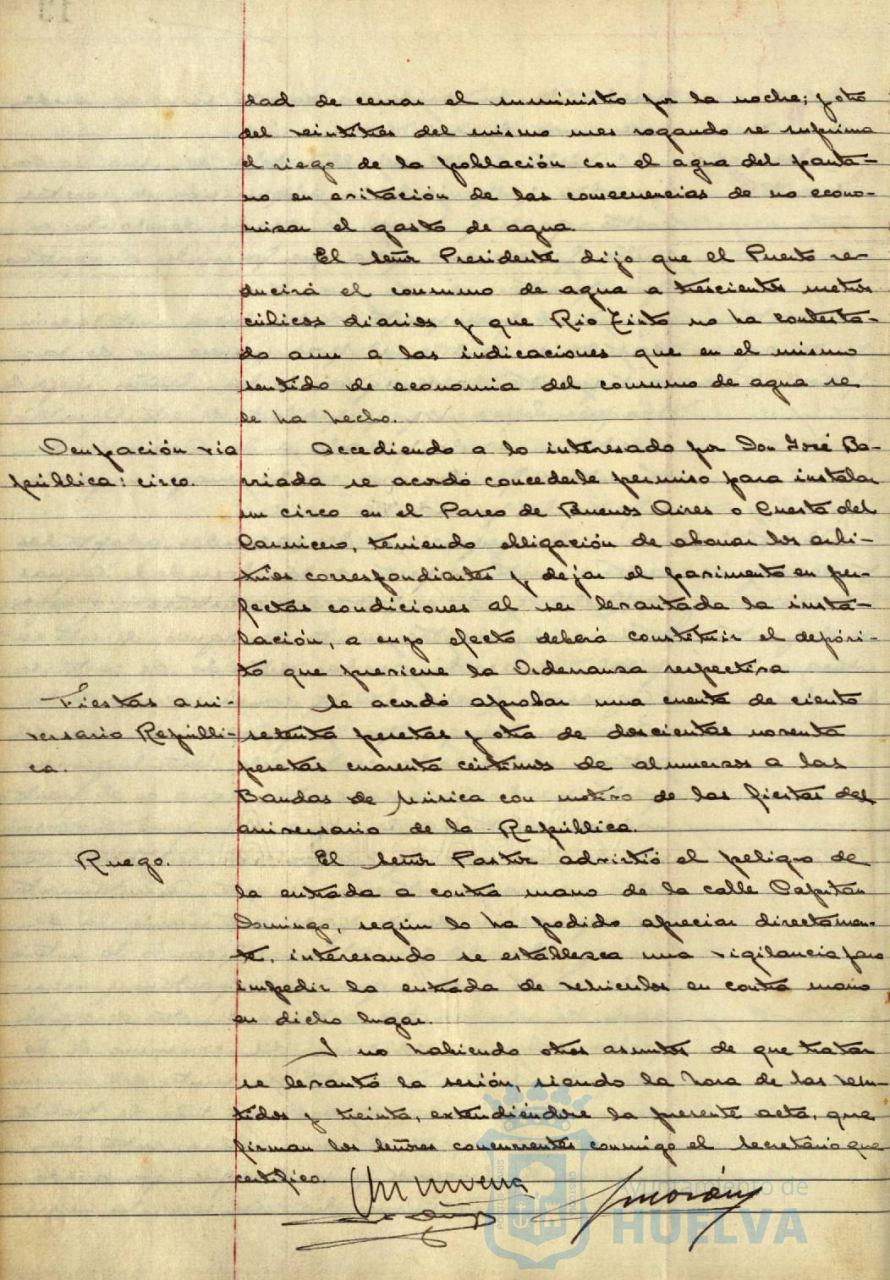 dad de cerrar el suministro por la noche; y otro
del veintitres del mismo mes rogando se suprima
el riego de la población con el agua del panta-
no en evitación de las consecuencias de no econo-
mizar el gasto de agua.
El señor Presidente dijo que el Puerto re-
ducirá el consumo de agua a trescientos metros
cúbicos diarios y que Rio Tinto no ha contesta-
do aun a las indicaciones que en el mismo
sentido de economia del consumo de agua se
le ha hecho.
Ocupación via
pública: circo.
Accediendo a lo interesado por Don José Ba-
rriada se acordó concederle permiso para instalar
un circo en el Paseo de Buenos Aires o Cuesta del
Carnicero, teniendo obligación de abonar los arbi-
trios correspondientes y dejar el pavimento en per-
fectas condiciones al ser levantada la insta-
lación, a cuyo efecto deberá constituir el depósi-
to que previene la Ordenanza respectiva
Fiestas ani-
versario Repúbli-
ca.
Se acordó aprobar una cuenta de ciento
setenta pesetas y otra de doscientas noventa
pesetas cuarenta céntimos de almuerzos a las
Bandas de Música con motivo de las fiestas del
aniversario de la República.
Ruego.
El señor Pastor advirtió el peligro de
la entrada a contra mano de la calle Capitan
Domingo, según lo ha podido apreciar directamen-
te, interesando se establezca una vigilancia para
impedir la entrada de vehiculos en contra mano
en dicho lugar.
Y no habiendo otros asuntos de que tratar
se levantó la sesión, siendo la hora de las vein-
tidos y treinta, extendiéndose la presente acta, que
firman los señores concurrentes conmigo el Secretario que
certifico.
Ayuntamiento de
HUELVA